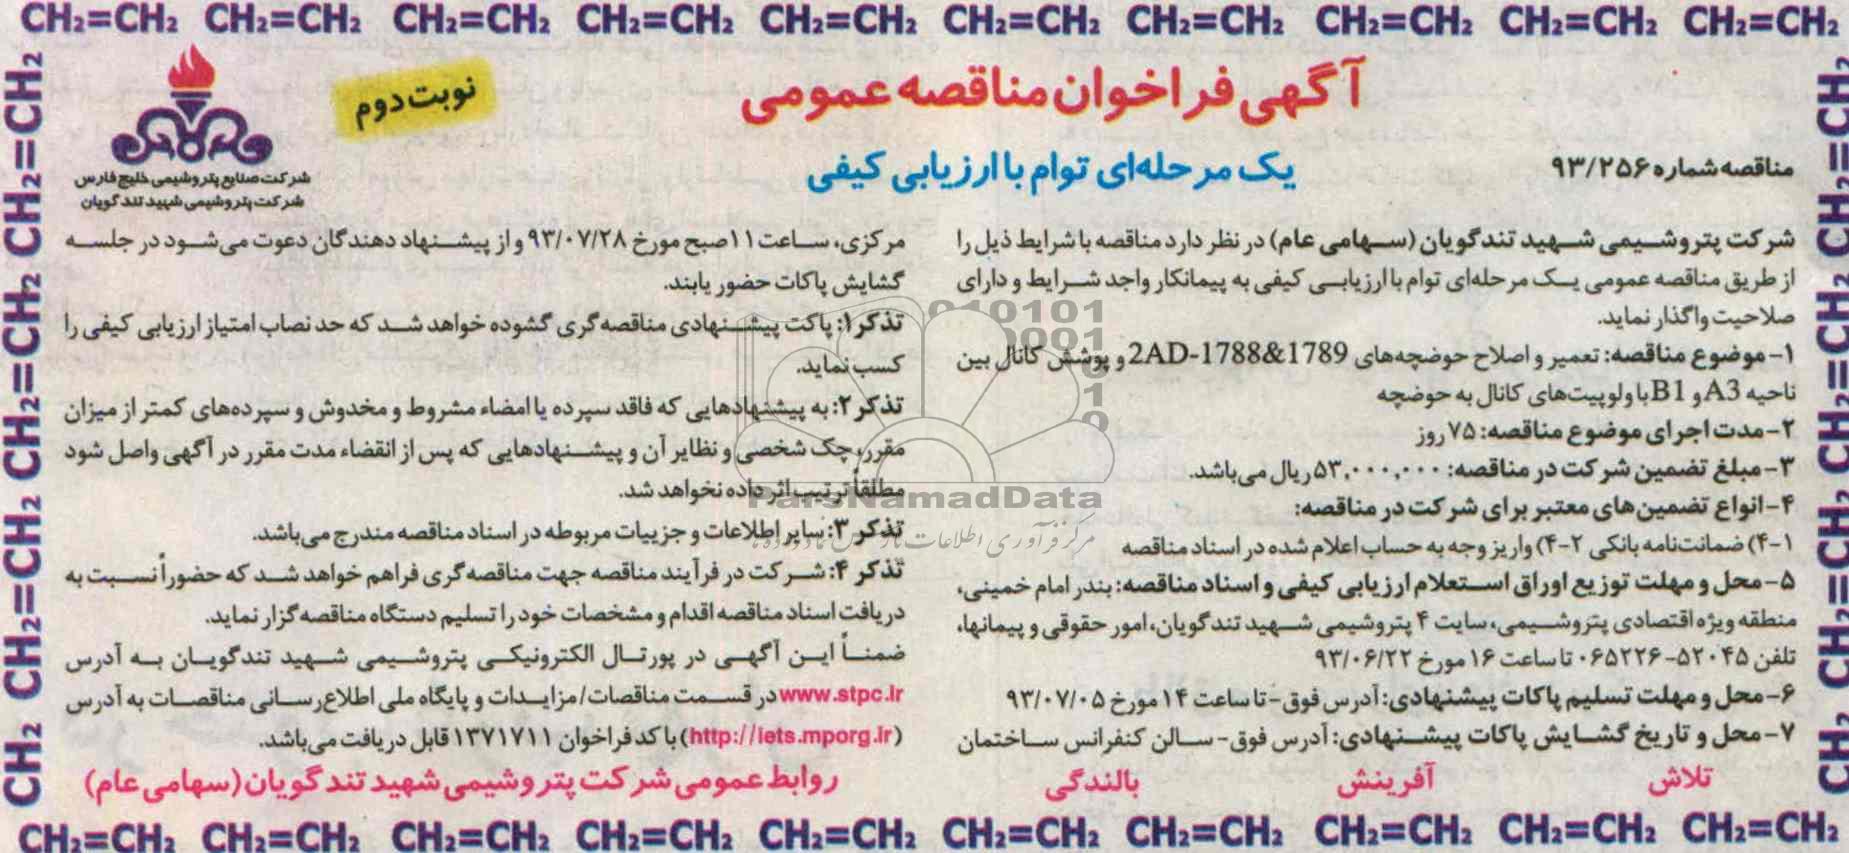 CH₂=CH₂ CH₂=CH₂ CH₂=CH₂ CH₂=CH₂ CH₂=CH₂ CH₂=CH₂ CH₂=CH₂ CH₂=CH₂ CH₂=CH₂ CH₂=CH₂
آگهی فراخوان مناقصه عمومی
نوبت دوم
یک مرحله‌ای توام با ارزیابی کیفی
مناقصه شماره ۹۳/۲۵۶
شرکت صنایع پتروشیمی خلیج فارس
شرکت پتروشیمی شهید تندگویان
شرکت پتروشیمی شهید تندگویان (سهامی عام) در نظر دارد مناقصه با شرایط ذیل را
از طریق مناقصه عمومی یک مرحله‌ای توام با ارزیابی کیفی به پیمانکار واجد شرایط و دارای
صلاحیت واگذار نماید.
۱- موضوع مناقصه: تعمیر و اصلاح حوضچه‌های 2AD-1788&1789 و پوشش کانال بین
ناحیه A3 و B1 با ولوپیت‌های کانال به حوضچه
۲- مدت اجرای موضوع مناقصه: ۷۵ روز
۳- مبلغ تضمین شرکت در مناقصه: ۵۳,۰۰۰,۰۰۰ ریال می‌باشد.
۴- انواع تضمین‌های معتبر برای شرکت در مناقصه:
۴-۱) ضمانت‌نامه بانکی ۴-۲) واریز وجه به حساب اعلام شده در اسناد مناقصه
۵- محل و مهلت توزیع اوراق استعلام ارزیابی کیفی و اسناد مناقصه: بندر امام خمینی،
منطقه ویژه اقتصادی پتروشیمی، سایت ۴ پتروشیمی شهید تندگویان، امور حقوقی و پیمانها،
تلفن ۵۲۰۴۵-۰۶۵۲۲۶ تا ساعت ۱۶ مورخ ۹۳/۰۶/۲۲
۶- محل و مهلت تسلیم پاکات پیشنهادی: آدرس فوق - تا ساعت ۱۴ مورخ ۹۳/۰۷/۰۵
۷- محل و تاریخ گشایش پاکات پیشنهادی: آدرس فوق - سالن کنفرانس ساختمان
مرکزی، ساعت ۱۱ صبح مورخ ۹۳/۰۷/۲۸ و از پیشنهاد دهندگان دعوت می‌شود در جلسه
گشایش پاکات حضور یابند.
تذکر ۱: پاکت پیشنهادی مناقصه‌گری گشوده خواهد شد که حد نصاب امتیاز ارزیابی کیفی را
کسب نماید.
تذکر ۲: به پیشنهادهایی که فاقد سپرده یا امضاء مشروط و مخدوش و سپرده‌های کمتر از میزان
مقرر، چک شخصی و نظایر آن و پیشنهادهایی که پس از انقضاء مدت مقرر در آگهی واصل شود
مطلقاً ترتیب اثر داده نخواهد شد.
تذکر ۳: سایر اطلاعات و جزییات مربوطه در اسناد مناقصه مندرج می‌باشد.
تذکر ۴: شرکت در فرآیند مناقصه جهت مناقصه‌گری فراهم خواهد شد که حضوراً نسبت به
دریافت اسناد مناقصه اقدام و مشخصات خود را تسلیم دستگاه مناقصه‌گزار نماید.
ضمناً این آگهی در پورتال الکترونیکی پتروشیمی شهید تندگویان به آدرس
www.stpc.ir در قسمت مناقصات/مزایدات و پایگاه ملی اطلاع‌رسانی مناقصات به آدرس
(http://iets.mporg.ir) با کد فراخوان ۱۳۷۱۷۱۱ قابل دریافت می‌باشد.
تلاش آفرینش بالندگی
روابط عمومی شرکت پتروشیمی شهید تندگویان (سهامی عام)
ParsNamadData
CH₂=CH₂ CH₂=CH₂ CH₂=CH₂ CH₂=CH₂
CH₂=CH₂ CH₂=CH₂ CH₂=CH₂ CH₂=CH₂
CH₂=CH₂ CH₂=CH₂ CH₂=CH₂ CH₂=CH₂ CH₂=CH₂ CH₂=CH₂ CH₂=CH₂ CH₂=CH₂ CH₂=CH₂ CH₂=CH₂